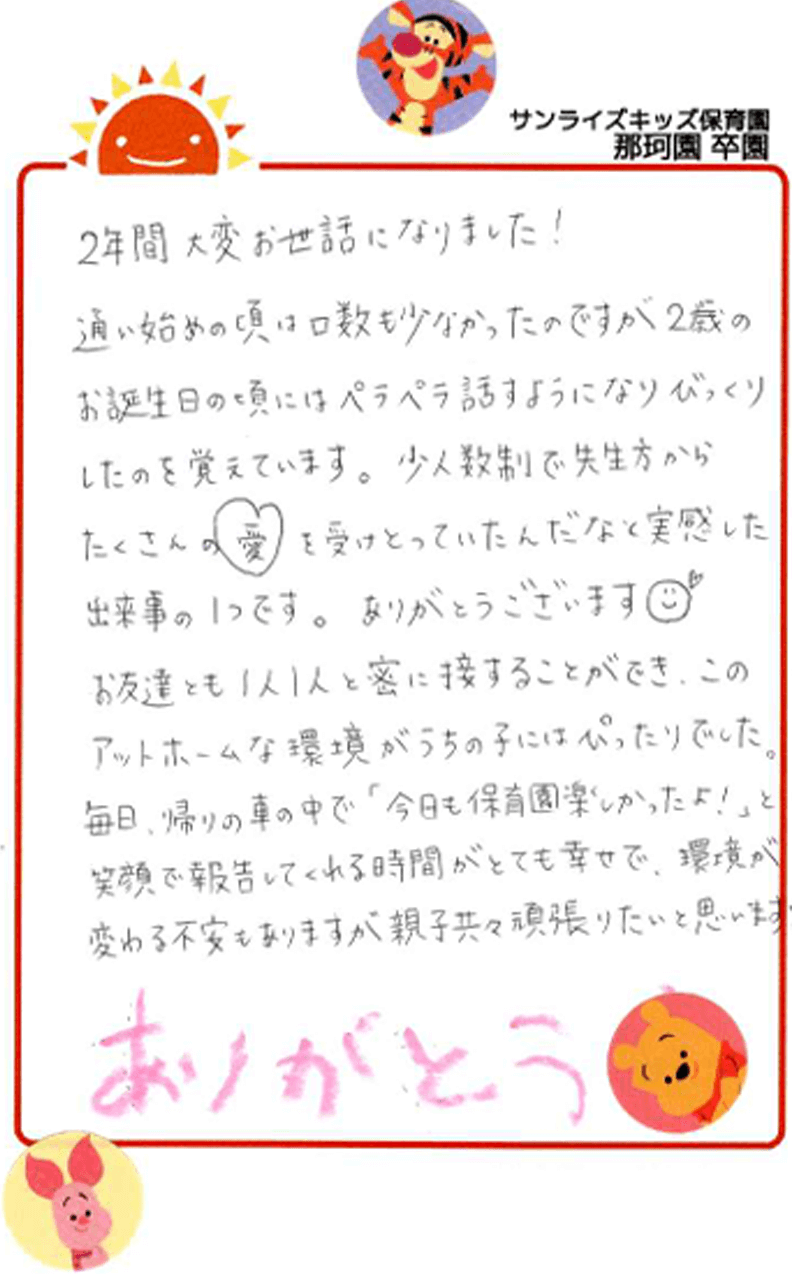 サンライズキッズ保育園
那珂園 卒園
2年間 大変お世話になりました!
通い始めの頃は口数も少なかったのですが2歳の
お誕生日の頃にはペラペラ話すようになりびっくり
したのを覚えています。少人数制で先生方から
たくさんの愛を受けとっていたんだなと実感した
出来事の1つです。ありがとうございます
お友達とも1人1人と密に接することができ、この
アットホームな環境がうちの子にはぴったりでした。
毎日、帰りの車の中で「今日も保育園楽しかったよ!」と
笑顔で報告してくれる時間がとても幸せで、環境が
変わる不安もありますが親子共々頑張りたいと思います
ありがとう